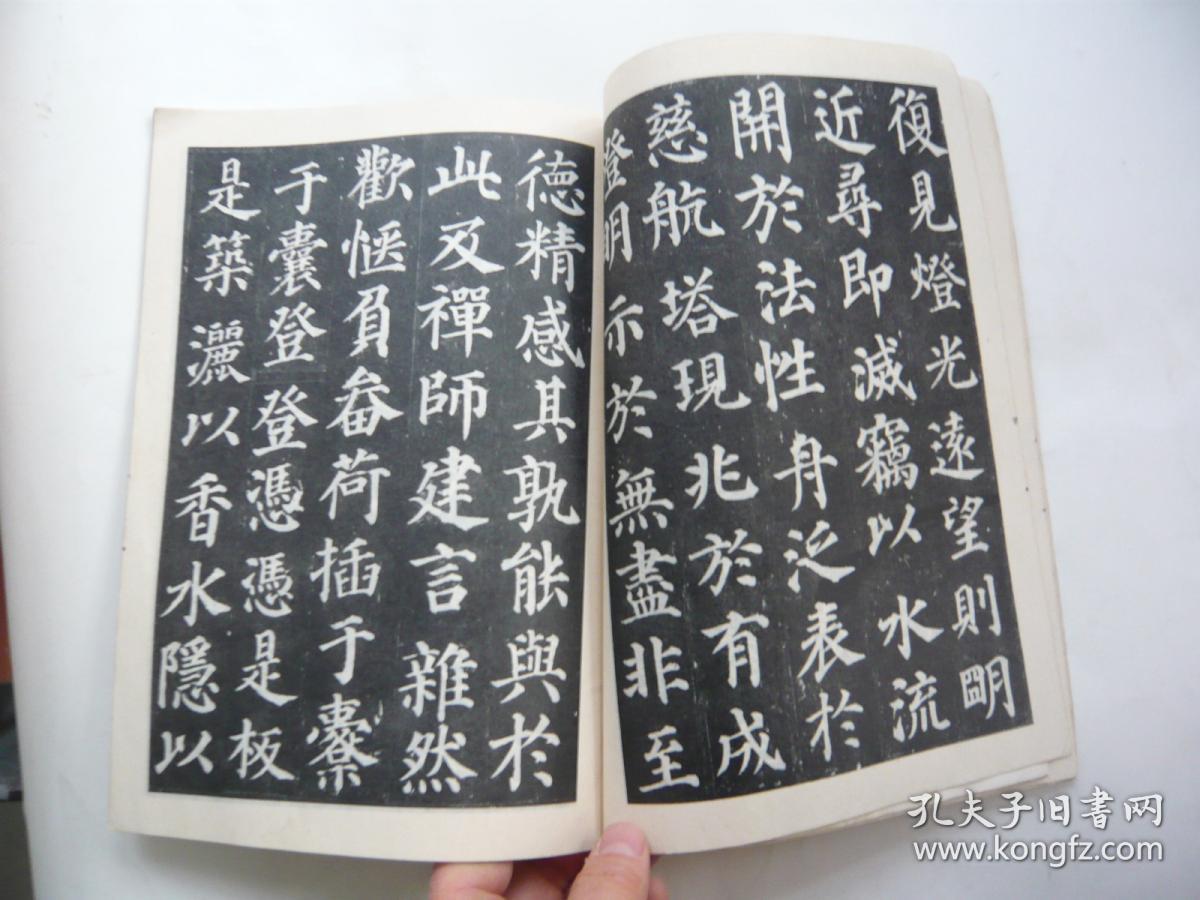 復見燈光遠望則明
近尋即滅竊以水流
開於法性舟泛表於
慈航塔現兆於有成
燈明示於無盡非至
德精感其孰能與於
此及禪師建言雜然
歡愜負畚荷插于橐
于囊登登憑憑是板
是築灑以香水隱以
孔夫子旧书网
www.kongfz.com